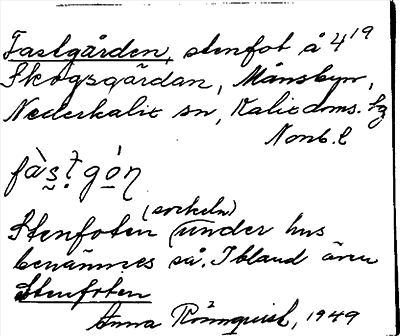 Fastgården, stenfot å 4¹⁹
Skogsgårdan, Månsbyn,
Nederkalix sn, Kalix doms. hg
Norrb. l
fàs̠t̠gọ́n̥
(sockeln)
Stenfoten (under hus
benämnes så. Ibland även
Stenfoten
Anna Rönnqvist, 1949